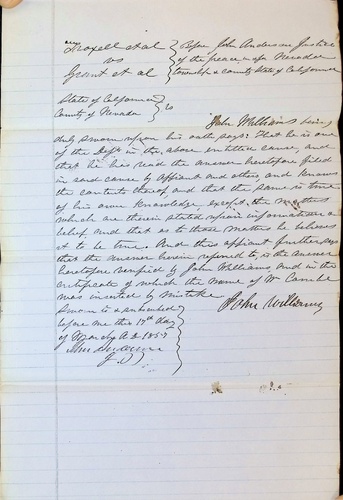 Troxell et al } Before John Anderson Justice
vs } of the peace in & for Nevada
Grant et al } township & county State of California
State of California }
County of Nevada } ss
John Williams being
duly sworn upon his oath, says: That he is one
of the Defts in the above entitled cause, and
that he has read the answer heretofore filed
in said cause by affiant and others, and knows
the contents thereof, and that the same is true
of his own knowledge, except the matters
which are therein stated upon information &
belief and that as to those matters he believes
it to be true. And this affiant further says
that the answer herein refered to, is the answer
heretofore verified by John Williams and in the
certificate of which the name of Wm
was inserted by mistake
Sworn to & subscribed } John Williams
before me this 17th day
of A.D. 1857
John Anderson
J.P.